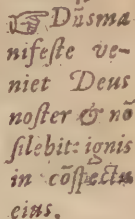 ☞ Dñs ma
nifeſte ve-
niet Deus
noſter & nõ
ſilebit: ignis
in cõſpectu
eius,